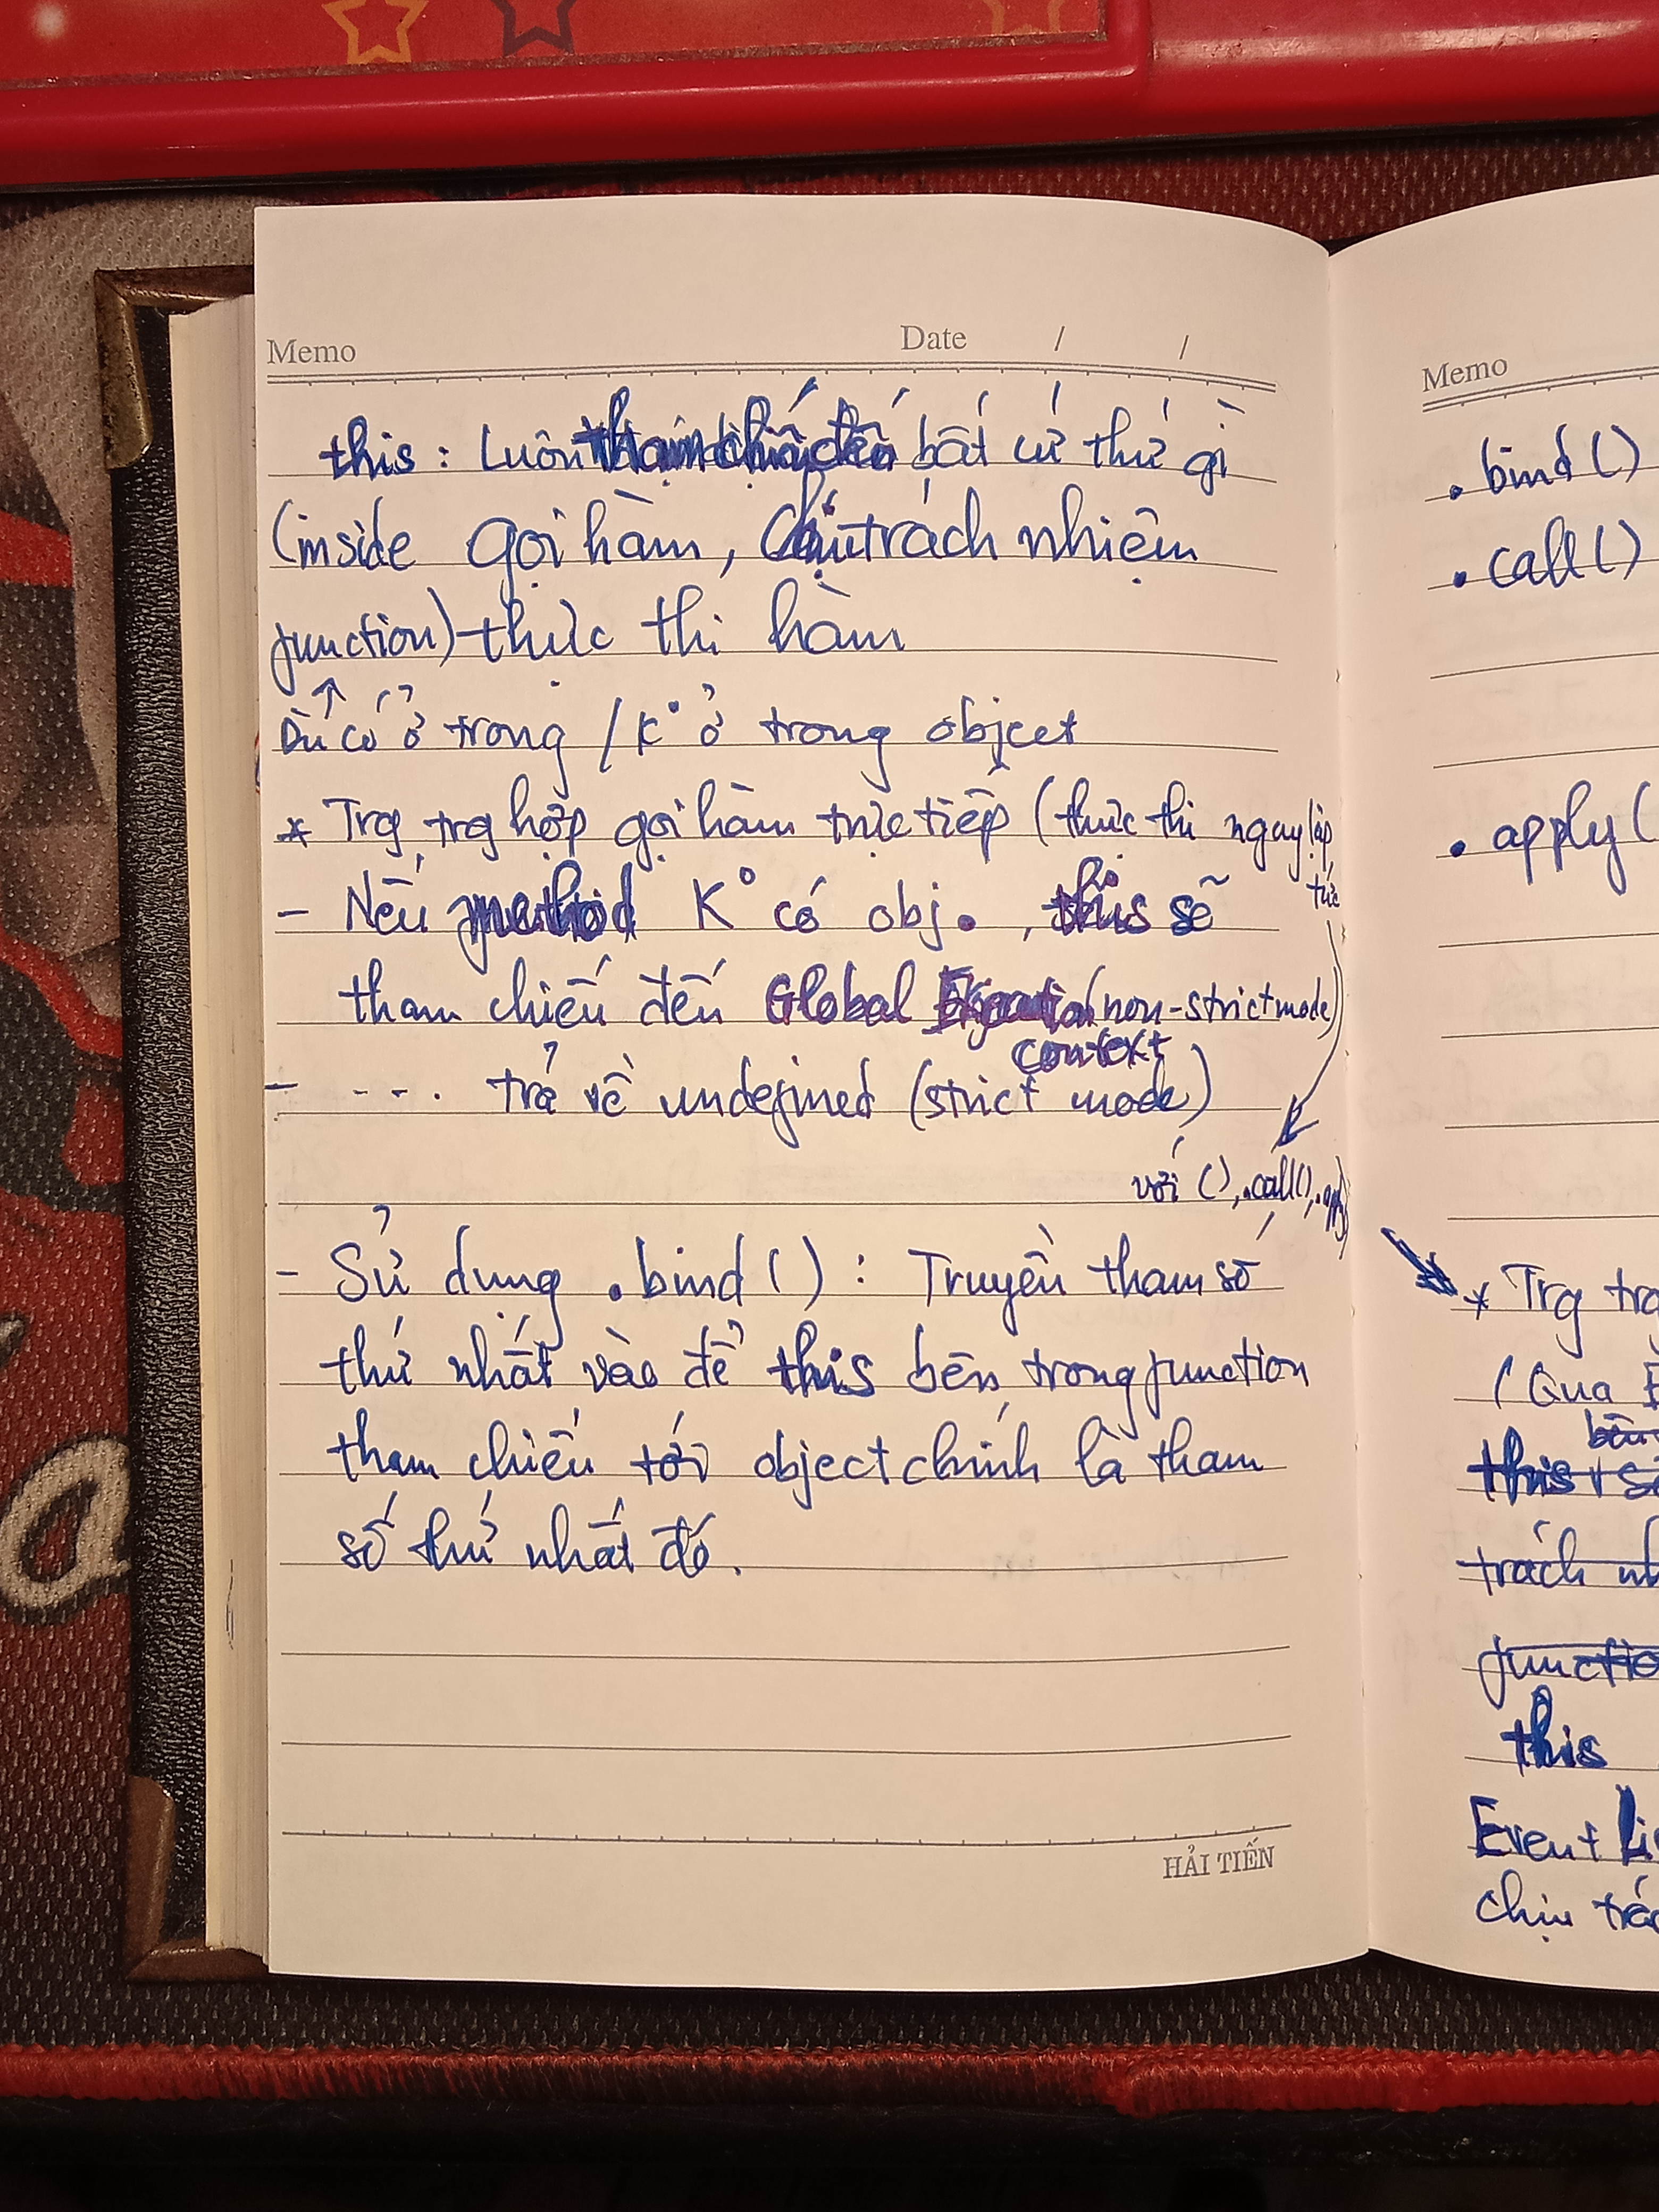 Memo Date / /
this : Luôn tham chiếu đến bất cứ thứ gì
(inside gọi hàm, Chịu trách nhiệm
function) thực thi hàm
Dù có ở trong / K° ở trong object
* Trg trg hợp gọi hàm trực tiếp (thực thi ngay lập
tức
- Nếu method K° có obj. , this sẽ
tham chiếu đến Global (non-strict mode)
context
- ... trả về undefined (strict mode)
với (), .call(),
- Sử dụng .bind() : Truyền tham số
thứ nhất vào để this bên trong function
tham chiếu tới object chính là tham
số thứ nhất đó.
HẢI TIẾN
Memo
• bind()
• call()
• apply(
* Trg trg
(Qua
this
trách
this
Event
chịu